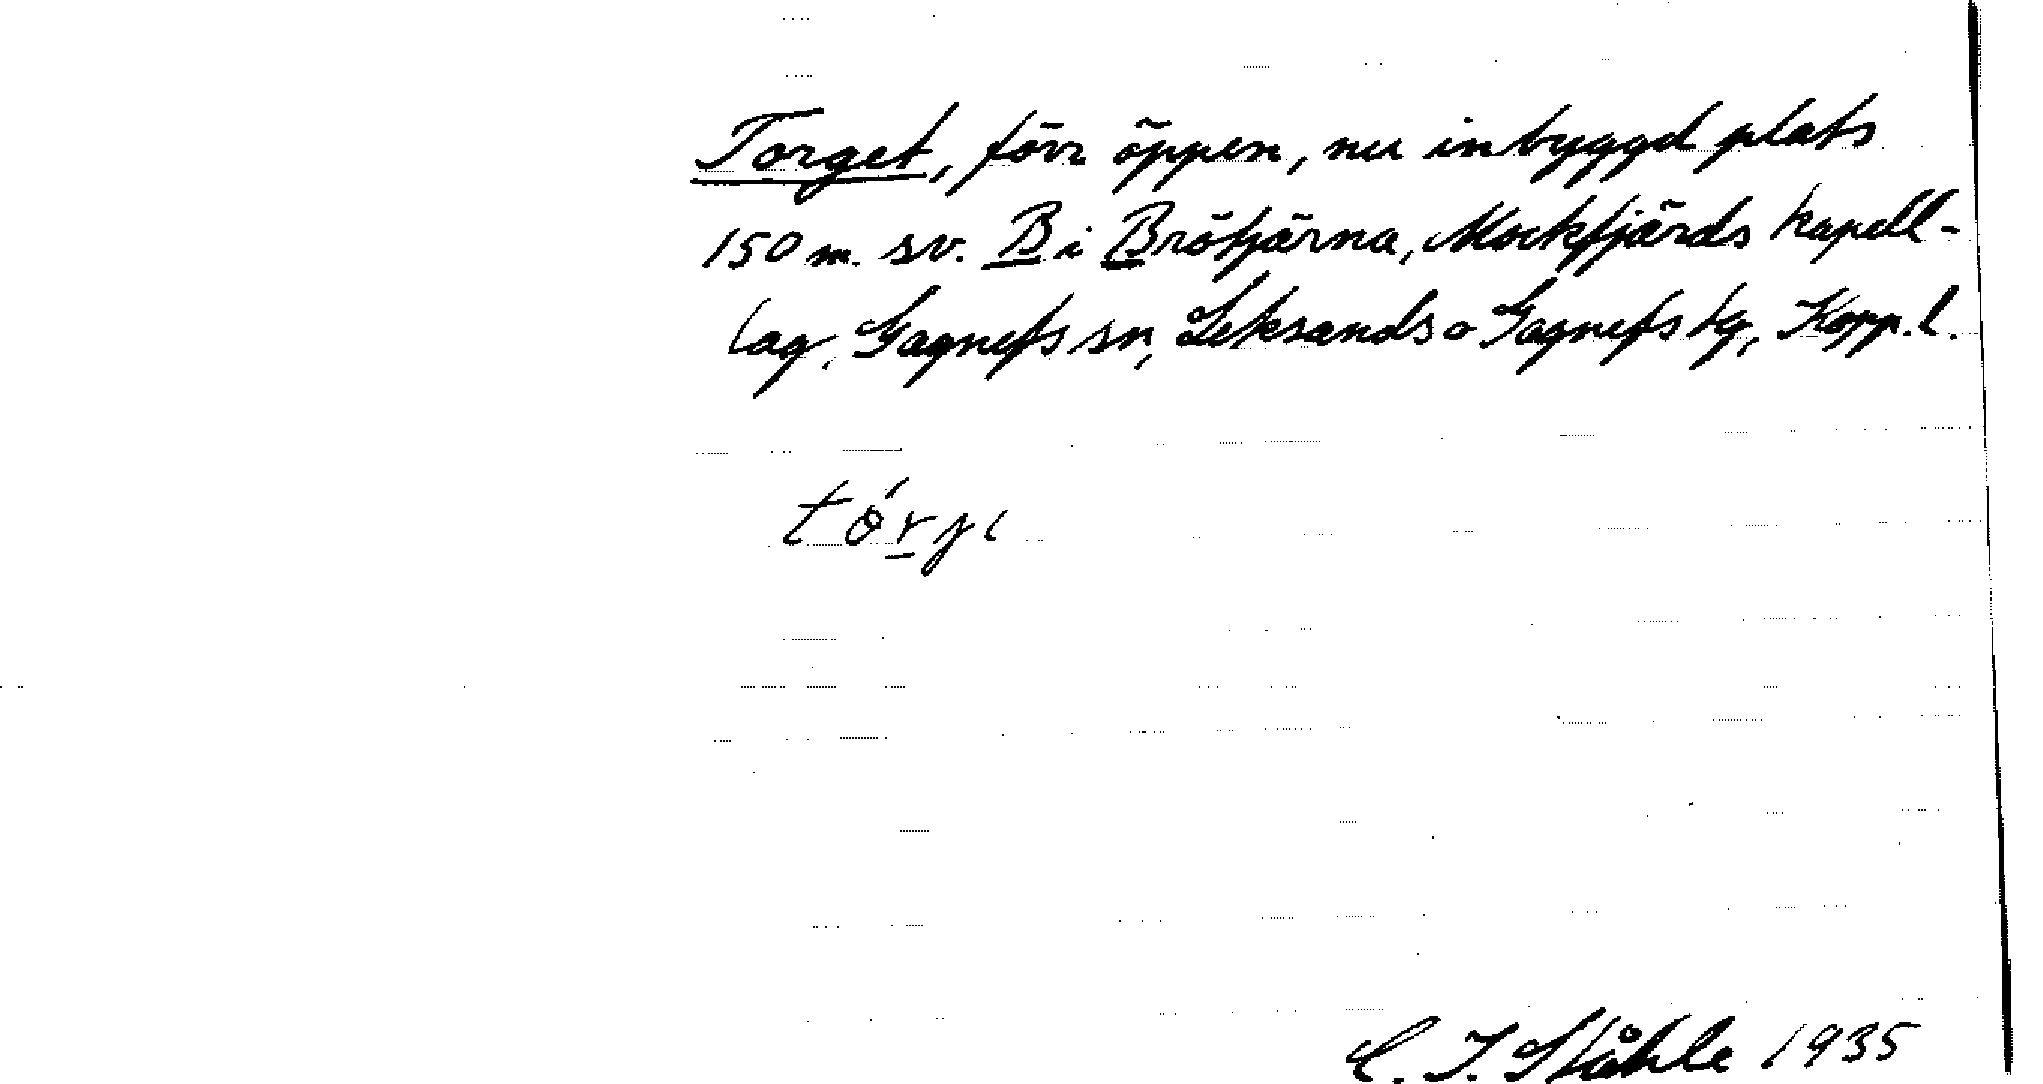 Torget, förr öppen, nu inbyggd plats
150 m. sv. B i Brötjärna, Mockfjärds kapell-
lag, Gagnefs sn, Leksands o Gagnefs tg, Kopp. l.
tö́rji
C. I. Ståhle 1935